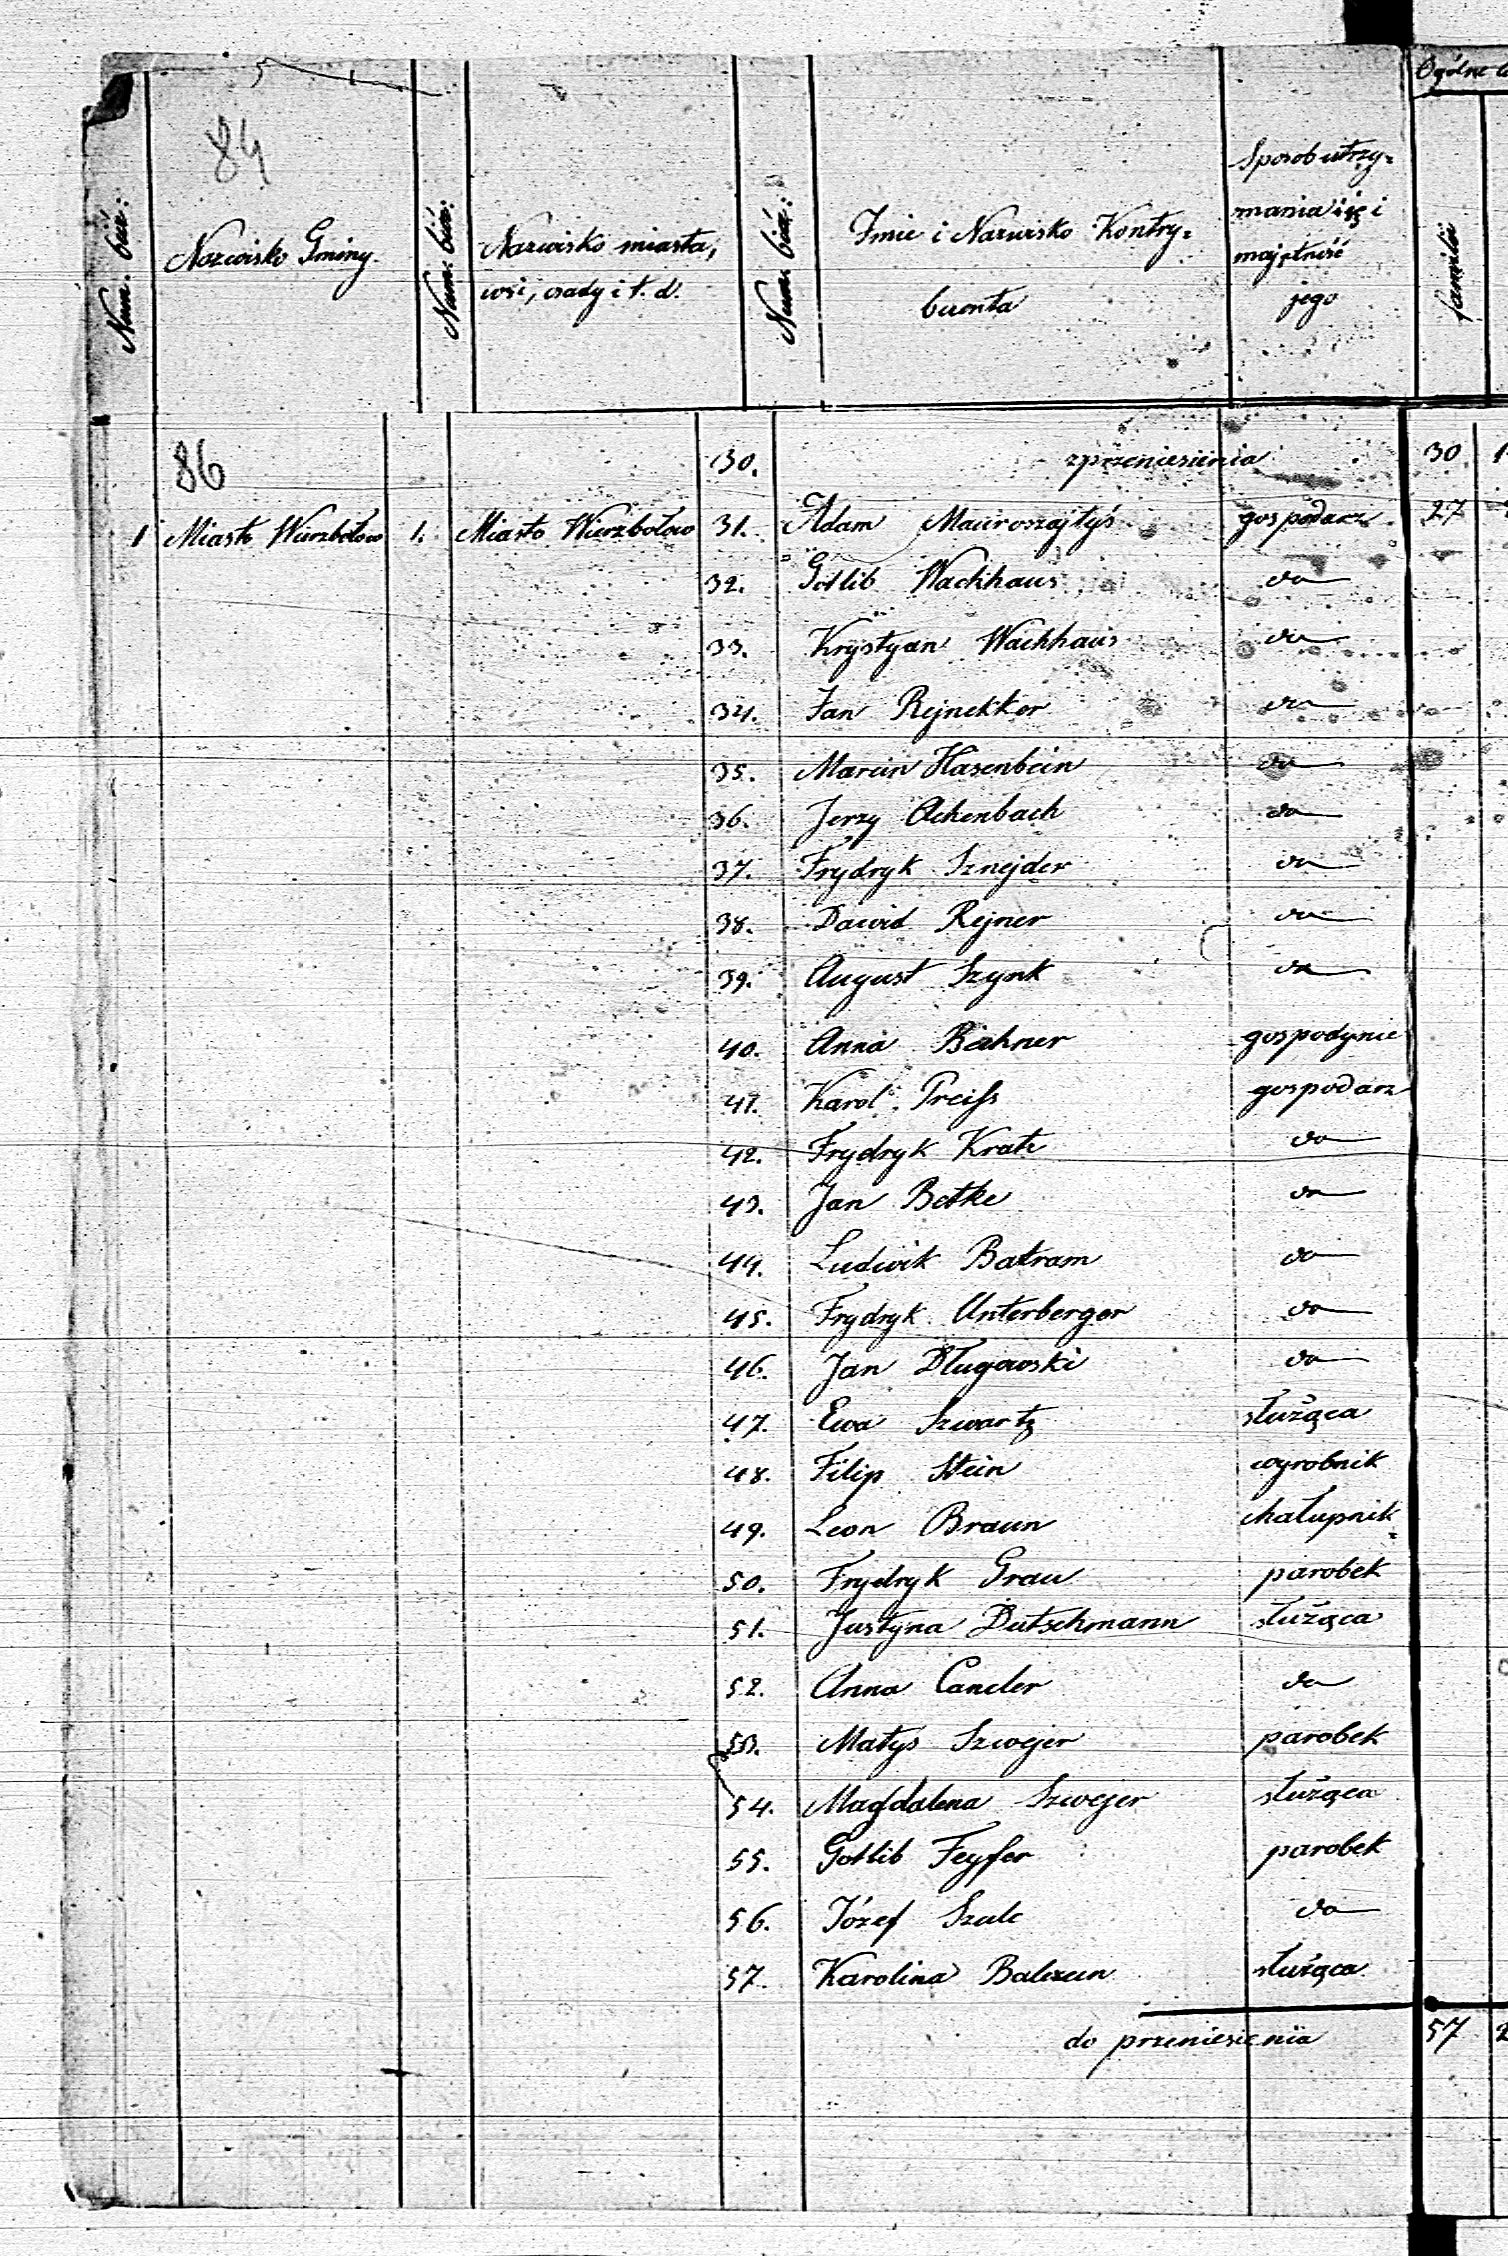 Ogólne
84
Num. bież:
Nazwisko Gminy.
Num. bież:
Nazwisko miasta,
wsi, osady i t. d.
Num. bież:
Imie i Nazwisko Kontry=
buenta
Sposob utrzy=
mania się i
majętność
jego
familii
86
30. zprzeniesienia 30
1 Miasto Wierzbołow 1. Miasto Wierzbołowo 31. Adam Mauroszajtyś gospodarz 27
32. Gotlib Wachhaus do
33. Krystyan Wachhaus do
34. Jan Rejnekker do
35. Marcin Hasenbein do
36. Jerzy Achenbach do
37. Frydryk Sznejder do
38. Dawid Rejner do
39. August Szynk do
40. Anna Bähner gospodynie
41. Karol Preiss gospodarz
42. Frydryk Kratz do
43. Jan Betke do
44. Ludwik Batram do
45. Frydryk Unterberger do
46. Jan Długowski do
47. Ewa Szwartz służąca
48. Filip Stein wyrobnik
49. Leon Braun chałupnik
50. Frydryk Grau parobek
51. Justyna Dutschmann służąca
52. Anna Cander do
53. Matys Szwejer parobek
54. Magdalena Szwejer służąca
55. Gotlib Feyfer parobek
56. Józef Szulc do
57. Karolina Balczun służąca
do przeniesienia 57